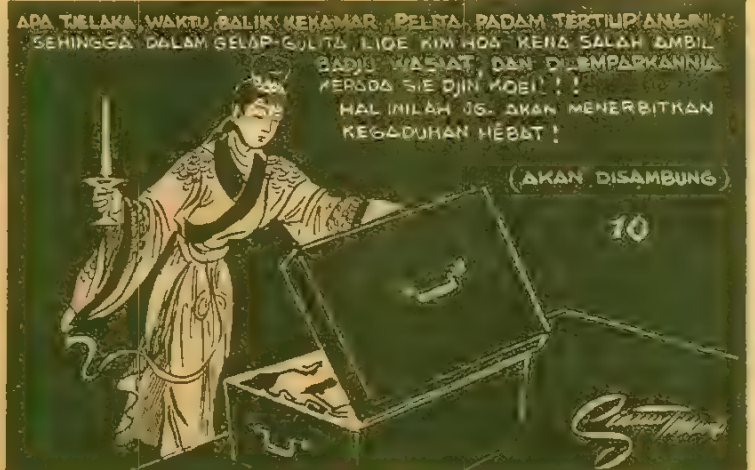 APA TJELAKA WAKTU BALIK KEKAMAR, PELITA PADAM TERTIUP ANGIN,
SEHINGGA DALAM GELAP-GULITA, LIOE KIM HOA KENA SALAH AMBIL
BADJU WASIAT, DAN DILEMPARKANNIA
KEPADA SIE DJIN KOEI!!!
HAL INILAH JG. AKAN MENERBITKAN
KEGADUHAN HÉBAT!
(AKAN DISAMBUNG)
10